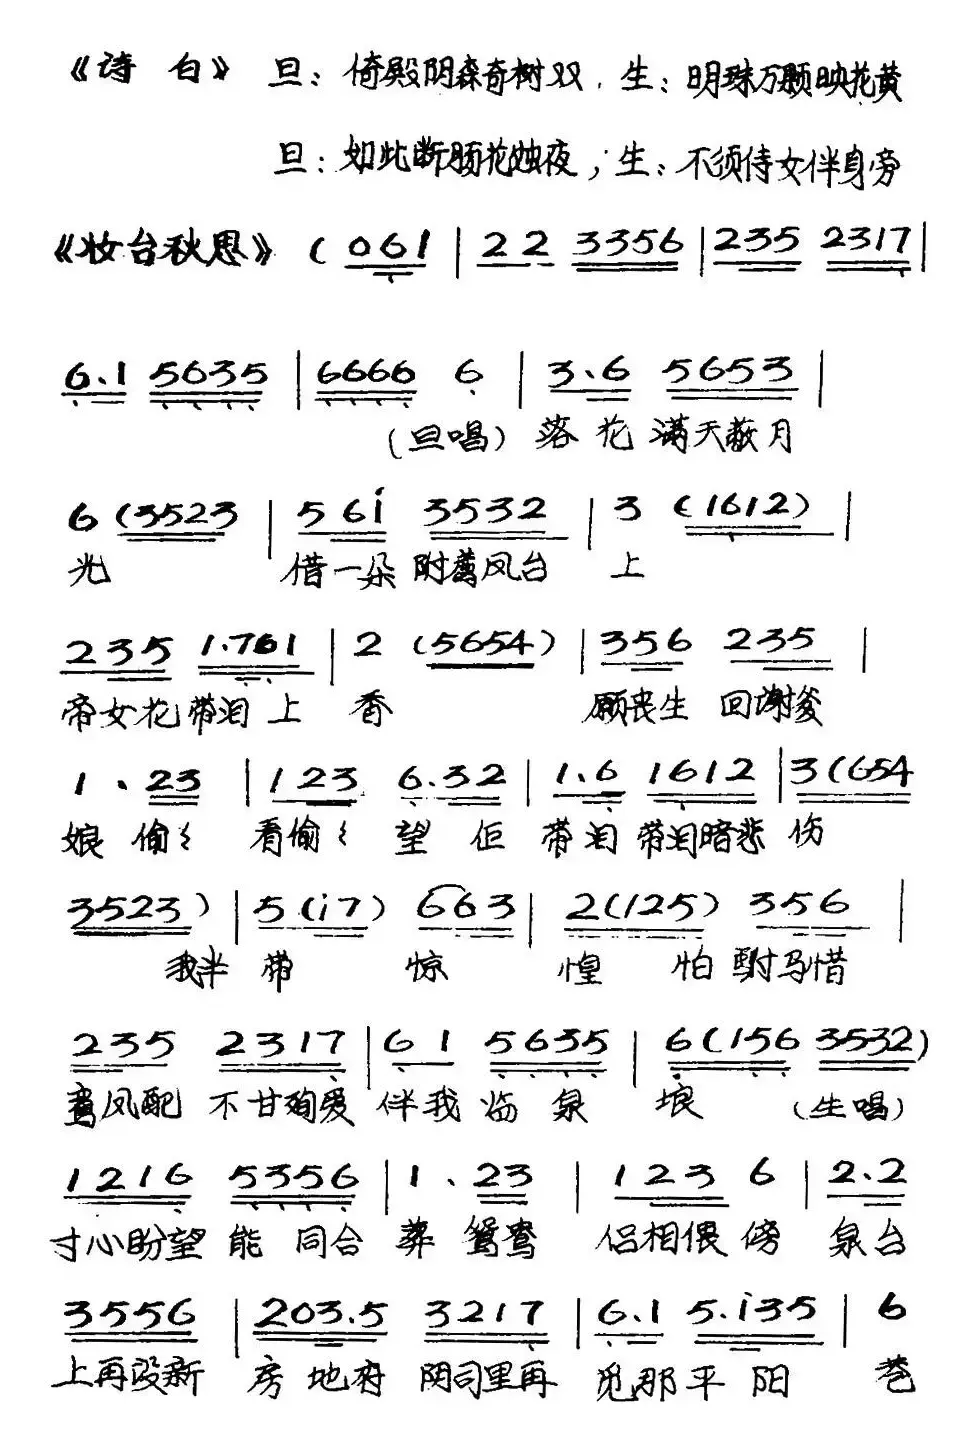 《诗 白》 旦：倚殿阴森奇树双，生：明珠万颗映花黄
旦：如此断肠花烛夜，生：不须侍女伴身旁
《妆台秋思》（061｜22 3356｜235 2317｜
6.1 5635｜6666 6｜3.6 5653｜
（旦唱）落花 满天蔽月
6（3523｜56i 3532｜3（1612）｜
光 借一朵 附荐凤台 上
235 1.761｜2（5654）｜356 235｜
帝女花 带泪上 香 愿丧生 回谢爹
1.23｜123 6.32｜1.6 1612｜3（654
娘 偷〻 看偷〻 望 佢 带泪 带泪暗悲 伤
3523）｜5（i7）663｜2（125）356｜
我半 带 惊 惶 怕 驸马惜
235 2317｜61 5635｜6（156 3532）
鸾凤配 不甘殉爱 伴我 临 泉 埌 （生唱）
1216 5356｜1.23｜123 6｜2.2
寸心盼望 能 同合 葬 鸳鸯 侣相偎 傍 泉台
3556｜203.5 3217｜6.1 5.i35｜6
上再设新 房 地府 阴司里再 觅那 平 阳 巷